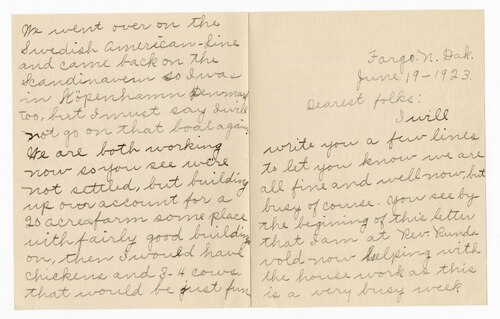 Fargo. N. Dak.
June 19-1923.
Dearest folks:
I will
write you a few lines
to let you know we are
all fine and well now, but
busy of course. You see by
the begining of this letter
that I am at Rev. Runds
vold now helping with
the house work as this
is a very busy week
We went over on the
Swedish American-line
and came back on the
Skandinavem so I was
in Köpenhamn Denmay
too, but I must say I will
not go on that boat again.
We are both working
now so you see we're
not settled, but building
up over account for a
20 acreafarm some place
with fairly good buildings
on, then I would have
chickens and 3-4 cows.
that would be just fun